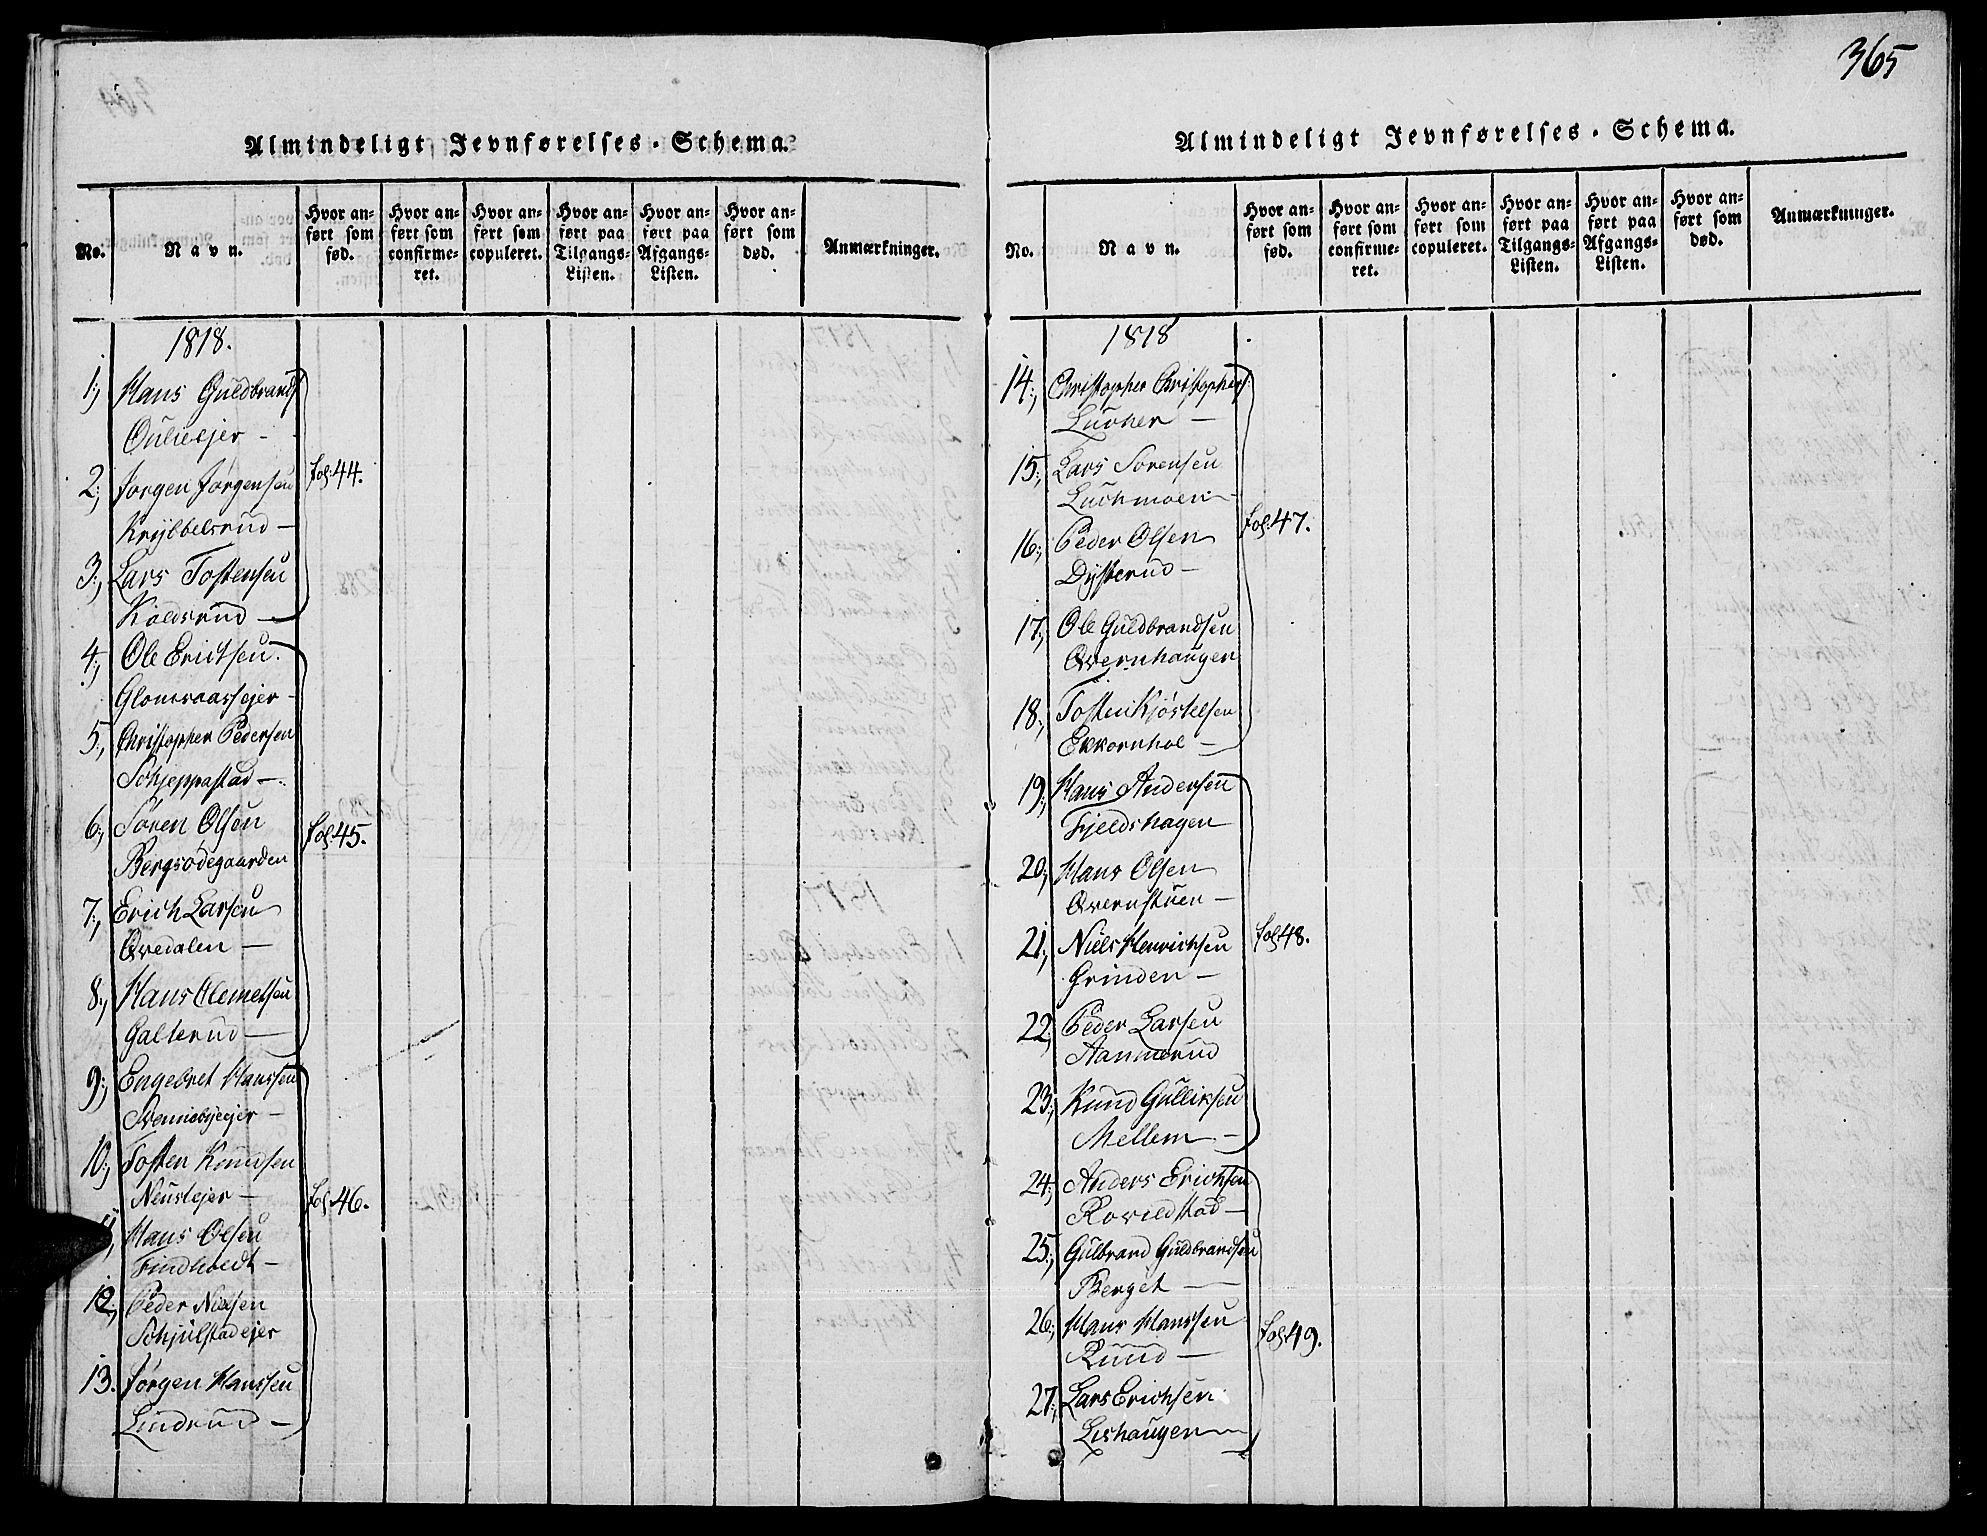 Almindeligt Jevnførelses-Schema.
No.
Navn.
Hvor an-
ført som
fød.
Hvor an-
ført som
confirme-
ret.
Hvor an-
ført som
copuleret.
Hvor an-
ført paa
Tilgangs-
Listen.
Hvor an-
ført paa
Afgangs-
Listen.
Hvor an-
ført som
død.
Anmærkninger.
1818.
1, Hans Guldbrands
2, Jørgen Jørgensen
Krybbelsrud —
fol: 44.
3, Lars Tostensen
Koldsrud —
4, Ole Erichsen
Glomsaasejer —
5, Christopher Pedersen
Schjeppastad —
6, Søren Olsen
Bergsødegaarden
fol: 45.
7, Erich Larsen
Qvedalen —
8, Hans Clemetsen
Galterud —
9, Engebret Hanssen
Svennebyejer —
10, Tosten Knudsen
fol: 46.
11, Hans Olsen
12, Peder Nielsen
Schjulstadejer
13. Jørgen Hanssen
Lindrud —
365
Almindeligt Jevnførelses-Schema.
No.
Navn.
Hvor an-
ført som
fød.
Hvor an-
ført som
confirme-
ret.
Hvor an-
ført som
copuleret.
Hvor an-
ført paa
Tilgangs-
Listen.
Hvor an-
ført paa
Afgangs-
Listen.
Hvor an-
ført som
død.
Anmærkninger.
1818
14, Christopher Christophers:
15, Lars Sørensen
16, Peder Olsen
Dysterud —
fol: 47.
17, Ole Guldbrandsen
Qvernhaugen
18, Tosten Kjøstelsen
Ekkornhol —
19, Hans Andersen
Fjeldshagen
20, Hans Olsen
Qvernstuen —
21, Niels Henrichsen
Grinden —
fol: 48.
22, Peder Larsen
Aannerud
23, Knud Gulliksen
Mellem —
24, Anders Erichsen
Rovildstad —
25, Gulbrand Guldbrandsen
Berget —
26, Hans Hanssen
Ruud —
fol: 49.
27, Lars Erichsen
Lishaugen —